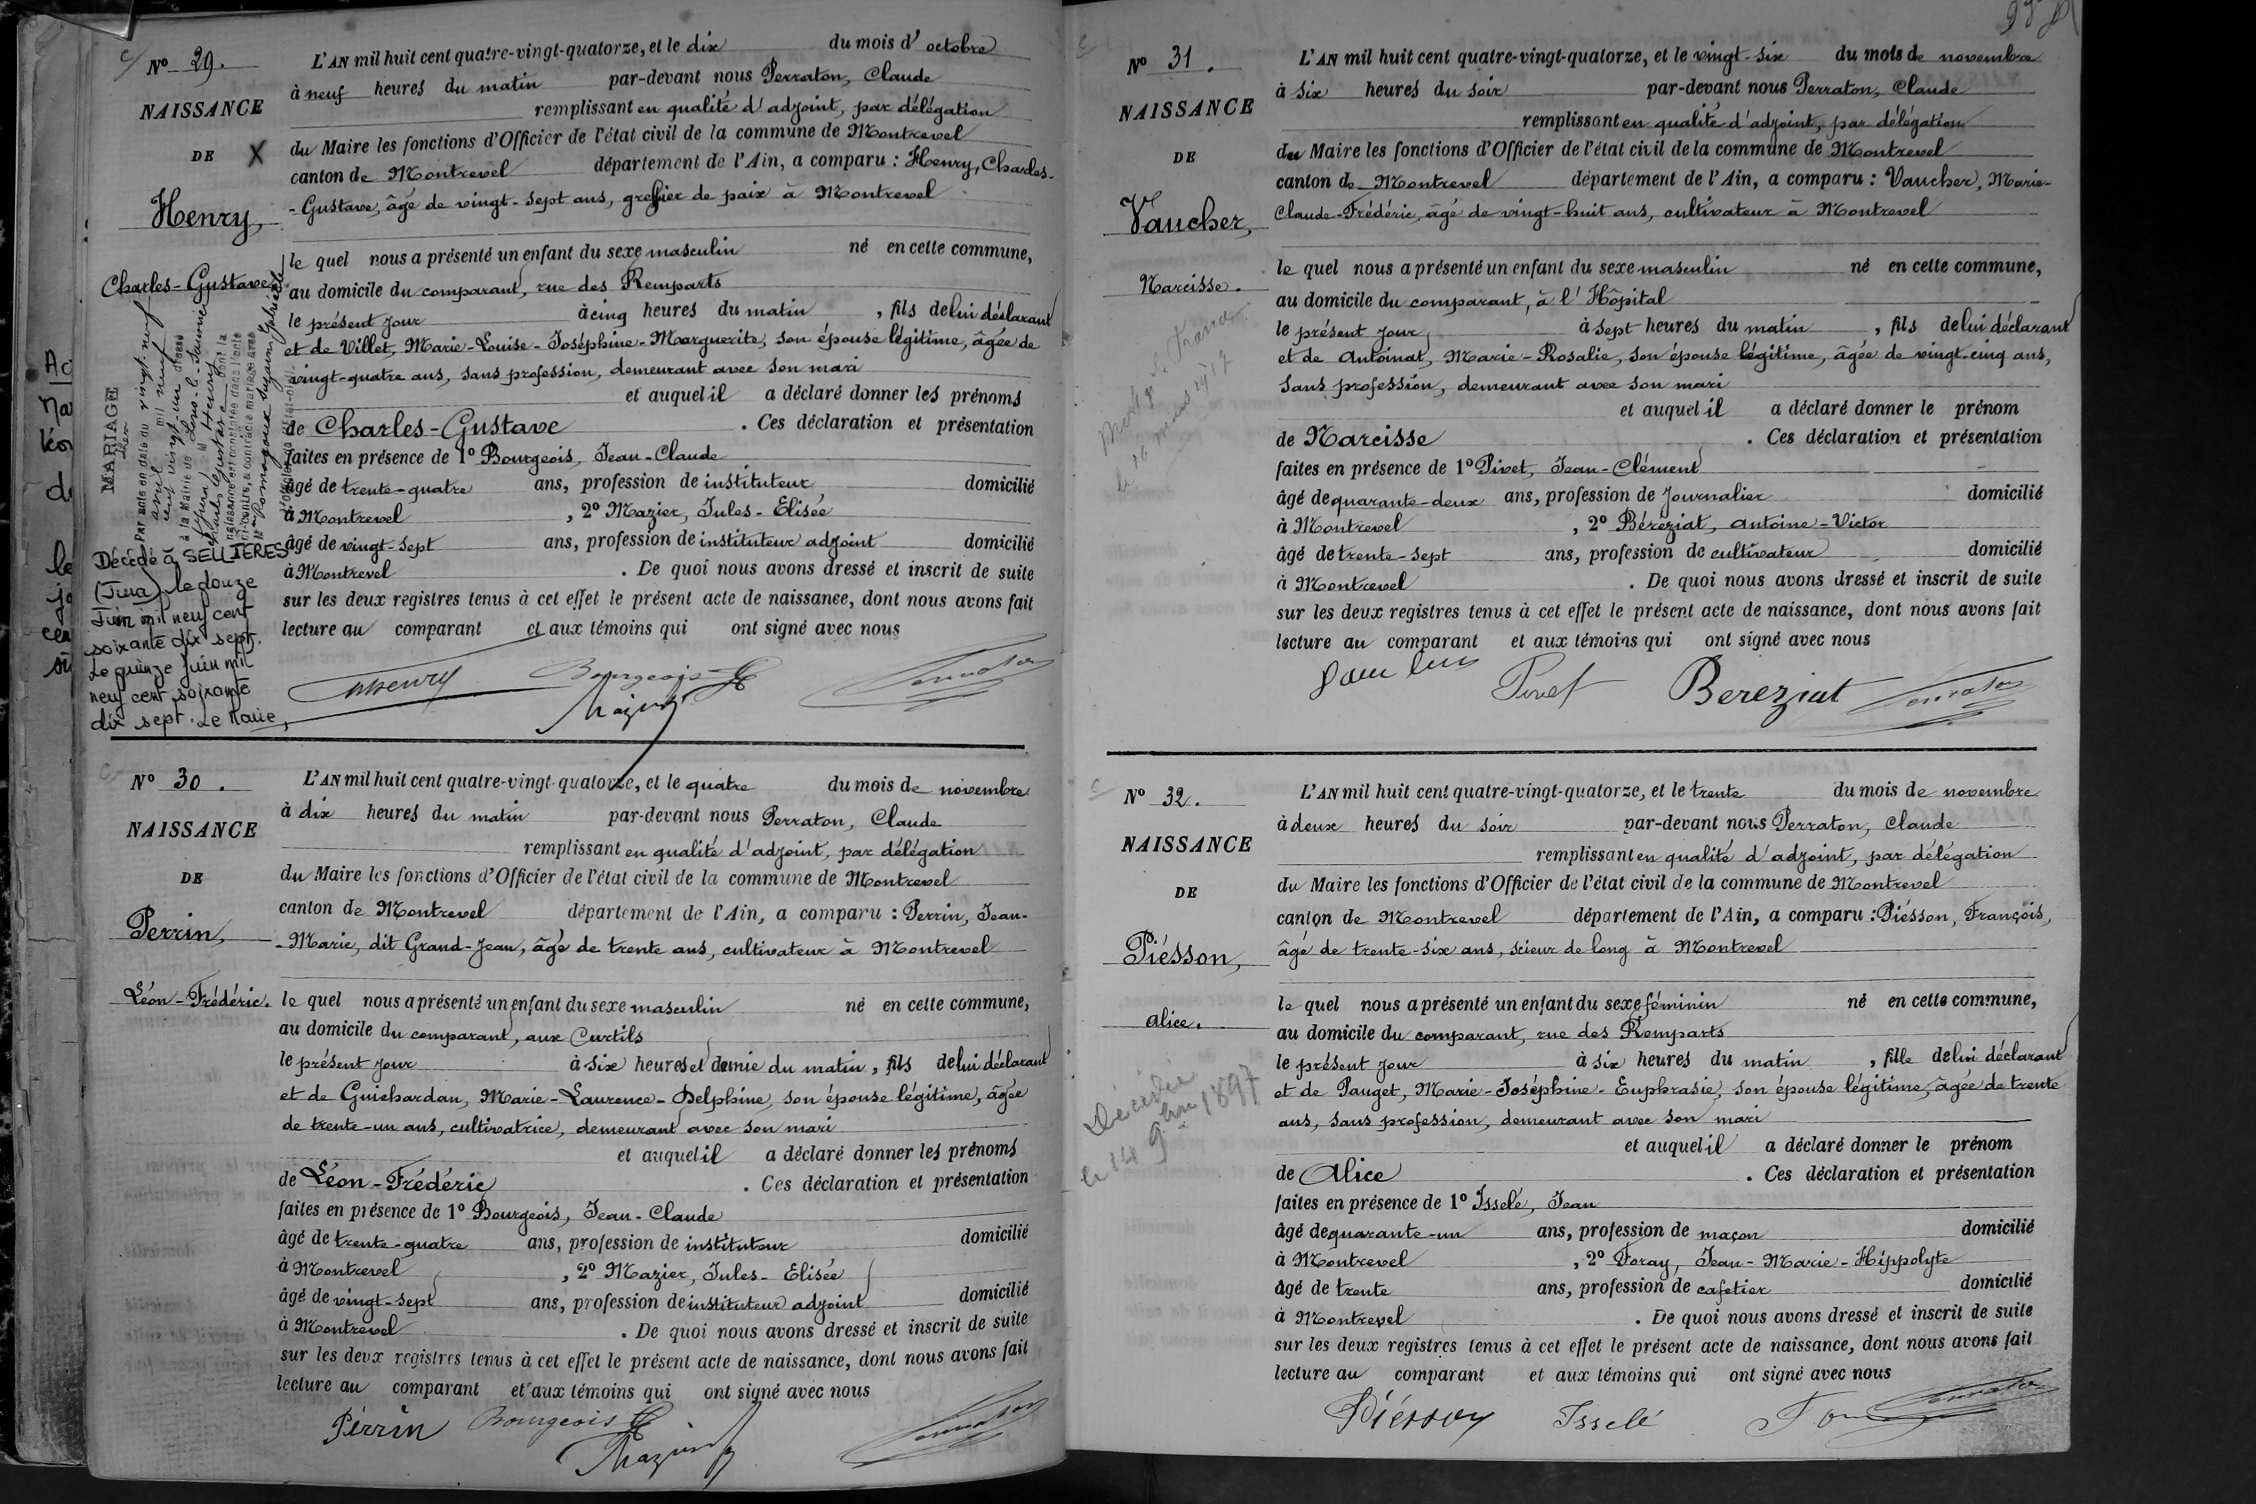 Nº 29.
NAISSANCE
DE
Henry,
Charles-Gustave
L'AN mil huit cent quatre-vingt-quatorze, et le dix du mois d'octobre
à neuf heures du matin par-devant nous Perraton, Claude
remplissant en qualité d'adjoint, par délégation
du Maire les fonctions d'Officier de l'état civil de la commune de Montrevel
canton de Montrevel département de l'Ain, a comparu : Henry, Charles-
-Gustave, âgé de vingt-sept ans, greffier de paix à Montrevel
le quel nous a présenté un enfant du sexe masculin né en cette commune,
au domicile du comparant, rue des Remparts
le présent jour à cinq heures du matin, fils de lui déclarant
et de Villet, Marie-Louise-Joséphine-Marguerite, son épouse légitime, âgée de
vingt-quatre ans, sans profession, demeurant avec son mari
et auquel il a déclaré donner les prénoms
de Charles-Gustave. Ces déclaration et présentation
faites en présence de 1º Bourgeois, Jean-Claude
âgé de trente-quatre ans, profession de instituteur domicilié
à Montrevel, 2º Mazier, Jules-Elisée
âgé de vingt-sept ans, profession de instituteur adjoint domicilié
à Montrevel. De quoi nous avons dressé et inscrit de suite
sur les deux registres tenus à cet effet le présent acte de naissance, dont nous avons fait
lecture au comparant et aux témoins qui ont signé avec nous
MARIAGE
Par acte en date du vingt-neuf
avril mil neuf
cent vingt-un dressé
à la Mairie de Lons-le-Saunier
(Jura) M Henry
Charles Gustave dont la
naissance est constatée dans l'acte
ci-contre, a contracté mariage avec
Décédé à SELLIERES
(Jura) le douze
Juin mil neuf cent
soixante dix sept.
Le quinze Juin mil
neuf cent soixante
dix sept. Le Maire,
Henry Bourgeois Perraton
Mazier
Nº 30.
NAISSANCE
DE
Perrin,
Léon-Frédéric.
L'AN mil huit cent quatre-vingt-quatorze, et le quatre du mois de novembre
à dix heures du matin par-devant nous Perraton, Claude
remplissant en qualité d'adjoint, par délégation
du Maire les fonctions d'Officier de l'état civil de la commune de Montrevel
canton de Montrevel département de l'Ain, a comparu : Perrin, Jean-
-Marie, dit Grand-Jean, âgé de trente ans, cultivateur à Montrevel
le quel nous a présenté un enfant du sexe masculin né en cette commune,
au domicile du comparant, aux Curtils
le présent jour à six heures et demie du matin, fils de lui déclarant
et de Guichardan, Marie-Laurence-Delphine, son épouse légitime, âgée
de trente-un ans, cultivatrice, demeurant avec son mari
et auquel il a déclaré donner les prénoms
de Léon-Frédéric. Ces déclaration et présentation
faites en présence de 1º Bourgeois, Jean-Claude
âgé de trente-quatre ans, profession de instituteur domicilié
à Montrevel, 2º Mazier, Jules-Elisée
âgé de vingt-sept ans, profession de instituteur adjoint domicilié
à Montrevel. De quoi nous avons dressé et inscrit de suite
sur les deux registres tenus à cet effet le présent acte de naissance, dont nous avons fait
lecture au comparant et aux témoins qui ont signé avec nous
Perrin Bourgeois Perraton
Mazier
Nº 31.
NAISSANCE
DE
Vaucher,
Narcisse.
L'AN mil huit cent quatre-vingt-quatorze, et le vingt-six du mois de novembre
à six heures du soir par-devant nous Perraton, Claude
remplissant en qualité d'adjoint, par délégation
du Maire les fonctions d'Officier de l'état civil de la commune de Montrevel
canton de Montrevel département de l'Ain, a comparu : Vaucher, Marie-
Claude-Frédéric, âgé de vingt-huit ans, cultivateur à Montrevel
le quel nous a présenté un enfant du sexe masculin né en cette commune,
au domicile du comparant, à l'Hôpital
le présent jour, à sept heures du matin, fils de lui déclarant
et de Antoinat, Marie-Rosalie, son épouse légitime, âgée de vingt-cinq ans,
sans profession, demeurant avec son mari
et auquel il a déclaré donner le prénom
de Narcisse. Ces déclaration et présentation
faites en présence de 1º Pivet, Jean-Clément
âgé de quarante-deux ans, profession de journalier domicilié
à Montrevel, 2º Béréziat, Antoine-Victor
âgé de trente-sept ans, profession de cultivateur domicilié
à Montrevel. De quoi nous avons dressé et inscrit de suite
sur les deux registres tenus à cet effet le présent acte de naissance, dont nous avons fait
lecture au comparant et aux témoins qui ont signé avec nous
Pivet Bereziat Perraton
Nº 32.
NAISSANCE
DE
Piésson,
Alice.
Décédée
le 14 9bre 1897
L'AN mil huit cent quatre-vingt-quatorze, et le trente du mois de novembre
à deux heures du soir par-devant nous Perraton, Claude
remplissant en qualité d'adjoint, par délégation
du Maire les fonctions d'Officier de l'état civil de la commune de Montrevel
canton de Montrevel département de l'Ain, a comparu : Piésson, François,
âgé de trente-six ans, scieur de long à Montrevel
le quel nous a présenté un enfant du sexe féminin né en cette commune,
au domicile du comparant, rue des Remparts
le présent jour à six heures du matin, fille de lui déclarant
et de Pauget, Marie-Joséphine-Euphrasie, son épouse légitime, âgée de trente
ans, sans profession, demeurant avec son mari
et auquel il a déclaré donner le prénom
de Alice. Ces déclaration et présentation
faites en présence de 1º Isselé, Jean
âgé de quarante-un ans, profession de maçon domicilié
à Montrevel, 2º Foray, Jean-Marie-Hippolyte
âgé de trente ans, profession de cafetier domicilié
à Montrevel. De quoi nous avons dressé et inscrit de suite
sur les deux registres tenus à cet effet le présent acte de naissance, dont nous avons fait
lecture au comparant et aux témoins qui ont signé avec nous
Piésson Isselé Perraton